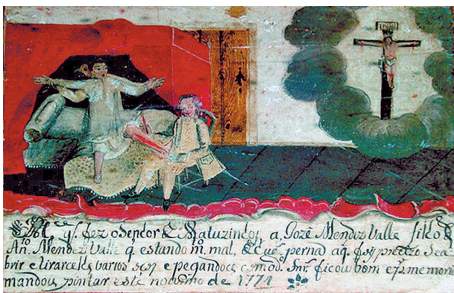 q. fez o Senhor de Matuzindos, a, Joze Mendez Valle filho
An.to Mendez Valle q. estando m.to mal, perna aq. foy precizo Se a
brir e tirarcelhe varios e pegandoce com od. Snr ficou bom e p.a memoria
mandou pintar este no anno de 1771